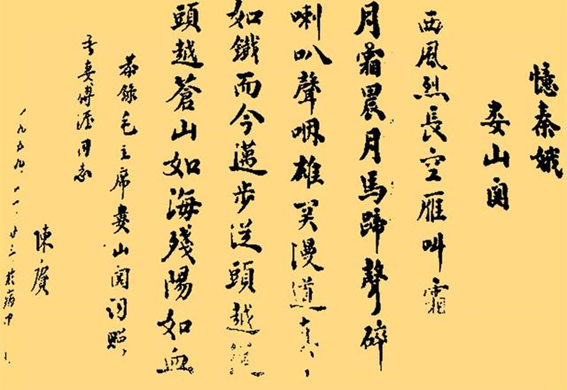 憶秦娥
娄山関
西風烈長空雁叫霜
月霜晨月馬蹄聲碎
喇叭聲咽雄关漫道真
如鐵而今邁步從頭越從
頭越蒼山如海殘陽如血
恭錄毛主席婁山関詞贈
吾妻傅涯同志
陳賡
一九五九.十一.廿三於病中